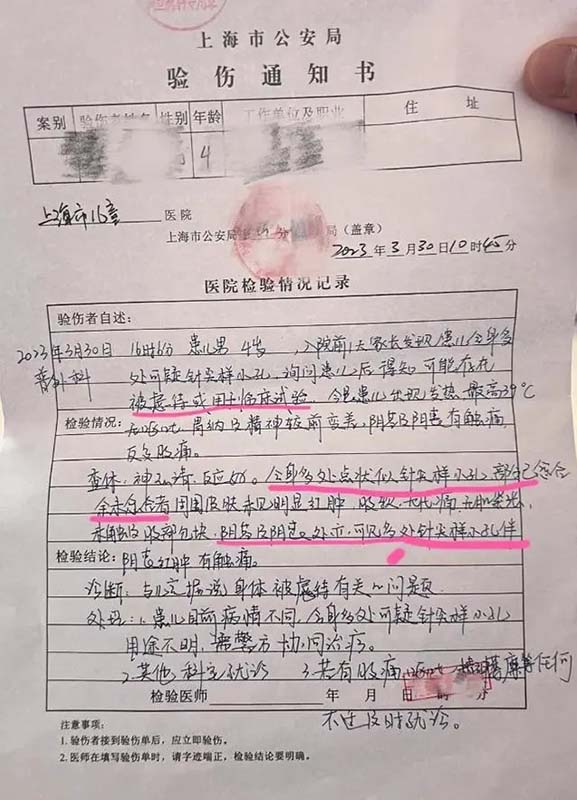 上海市公安局
验伤通知书
案别 验伤者姓名 性别 年龄 工作单位及职业 住址
4
上海市儿童 医院
上海市公安局 分局(盖章)
2023年3月30日10时45分
医院检验情况记录
验伤者自述:
2023年3月30日 16时6分 患儿男 4岁,入院前1天家长发现患儿全身多
普外科 处可疑针尖样小孔,询问患儿后得知可能存在
被虐待或用于临床试验,今患儿出现发热,最高39℃
无呕吐,胃纳及精神较前变差,阴茎及阴囊有触痛,
检验情况:
反复腹痛。
查体:神志清,反应好。全身多处点状似针尖样小孔,部分已愈合
余未愈合者周围皮肤未见明显红肿,腹软,无压痛,无肌紧张,
未触及腹部包块,阴茎及阴囊处亦可见多处针尖样小孔伴
检验结论:
阴茎红肿 有触痛。
诊断:
处理:1.患儿目前病情不同,全身多处可疑针尖样小孔
用途不明,需警方协同治疗。
2.其他科室就诊 3.若有腹痛 呕吐 等任何
检验医师 年 月 日 时 分
不适及时就诊。
注意事项:
1. 验伤者接到验伤单后,应立即验伤。
2. 医师在填写验伤单时,请字迹端正,检验结论要明确。